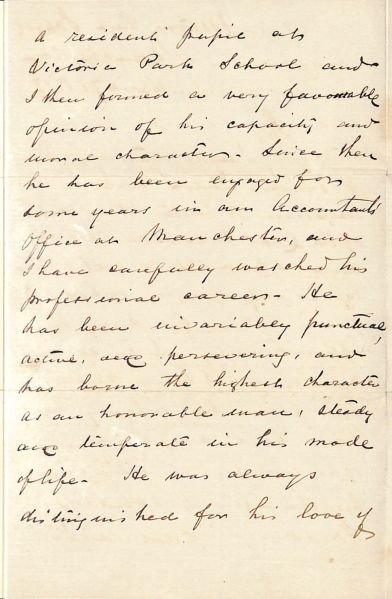 a resident pupil at
Victoria Park School and
I then formed a very favourable
opinion of his capacity and
moral character. Since then
he has been engaged for
some years in an Accountant's
Office at Manchester, and
I have carefully watched his
professional career. He
has been invariably punctual,
active, and persevering, and
has borne the highest character
as an honorable man, steady
and temperate in his mode
of life. He was always
distinguished for his love of